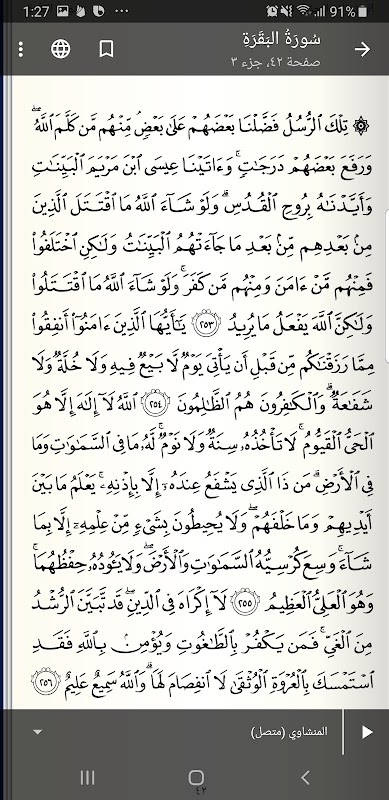 1:27 91%
سُورَةُ البَقَرَةِ
صفحة ٤٢، جزء ٣
۞ تِلْكَ ٱلرُّسُلُ فَضَّلْنَا بَعْضَهُمْ عَلَىٰ بَعْضٍ ۘ مِّنْهُم مَّن كَلَّمَ ٱللَّهُ ۖ
وَرَفَعَ بَعْضَهُمْ دَرَجَٰتٍ ۚ وَءَاتَيْنَا عِيسَى ٱبْنَ مَرْيَمَ ٱلْبَيِّنَٰتِ
وَأَيَّدْنَٰهُ بِرُوحِ ٱلْقُدُسِ ۗ وَلَوْ شَآءَ ٱللَّهُ مَا ٱقْتَتَلَ ٱلَّذِينَ
مِنۢ بَعْدِهِم مِّنۢ بَعْدِ مَا جَآءَتْهُمُ ٱلْبَيِّنَٰتُ وَلَٰكِنِ ٱخْتَلَفُوا۟
فَمِنْهُم مَّنْ ءَامَنَ وَمِنْهُم مَّن كَفَرَ ۚ وَلَوْ شَآءَ ٱللَّهُ مَا ٱقْتَتَلُوا۟
وَلَٰكِنَّ ٱللَّهَ يَفْعَلُ مَا يُرِيدُ ٢٥٣ يَٰٓأَيُّهَا ٱلَّذِينَ ءَامَنُوٓا۟ أَنفِقُوا۟
مِمَّا رَزَقْنَٰكُم مِّن قَبْلِ أَن يَأْتِىَ يَوْمٌ لَّا بَيْعٌ فِيهِ وَلَا خُلَّةٌ وَلَا
شَفَٰعَةٌ ۗ وَٱلْكَٰفِرُونَ هُمُ ٱلظَّٰلِمُونَ ٢٥٤ ٱللَّهُ لَآ إِلَٰهَ إِلَّا هُوَ
ٱلْحَىُّ ٱلْقَيُّومُ ۚ لَا تَأْخُذُهُۥ سِنَةٌ وَلَا نَوْمٌ ۚ لَّهُۥ مَا فِى ٱلسَّمَٰوَٰتِ وَمَا
فِى ٱلْأَرْضِ ۗ مَن ذَا ٱلَّذِى يَشْفَعُ عِندَهُۥٓ إِلَّا بِإِذْنِهِۦ ۚ يَعْلَمُ مَا بَيْنَ
أَيْدِيهِمْ وَمَا خَلْفَهُمْ ۖ وَلَا يُحِيطُونَ بِشَىْءٍ مِّنْ عِلْمِهِۦٓ إِلَّا بِمَا
شَآءَ ۚ وَسِعَ كُرْسِيُّهُ ٱلسَّمَٰوَٰتِ وَٱلْأَرْضَ ۖ وَلَا يَـُٔودُهُۥ حِفْظُهُمَا ۚ
وَهُوَ ٱلْعَلِىُّ ٱلْعَظِيمُ ٢٥٥ لَآ إِكْرَاهَ فِى ٱلدِّينِ ۖ قَد تَّبَيَّنَ ٱلرُّشْدُ
مِنَ ٱلْغَىِّ ۚ فَمَن يَكْفُرْ بِٱلطَّٰغُوتِ وَيُؤْمِنۢ بِٱللَّهِ فَقَدِ
ٱسْتَمْسَكَ بِٱلْعُرْوَةِ ٱلْوُثْقَىٰ لَا ٱنفِصَامَ لَهَا ۗ وَٱللَّهُ سَمِيعٌ عَلِيمٌ ٢٥٦
المنشاوي (متصل)
٤٢